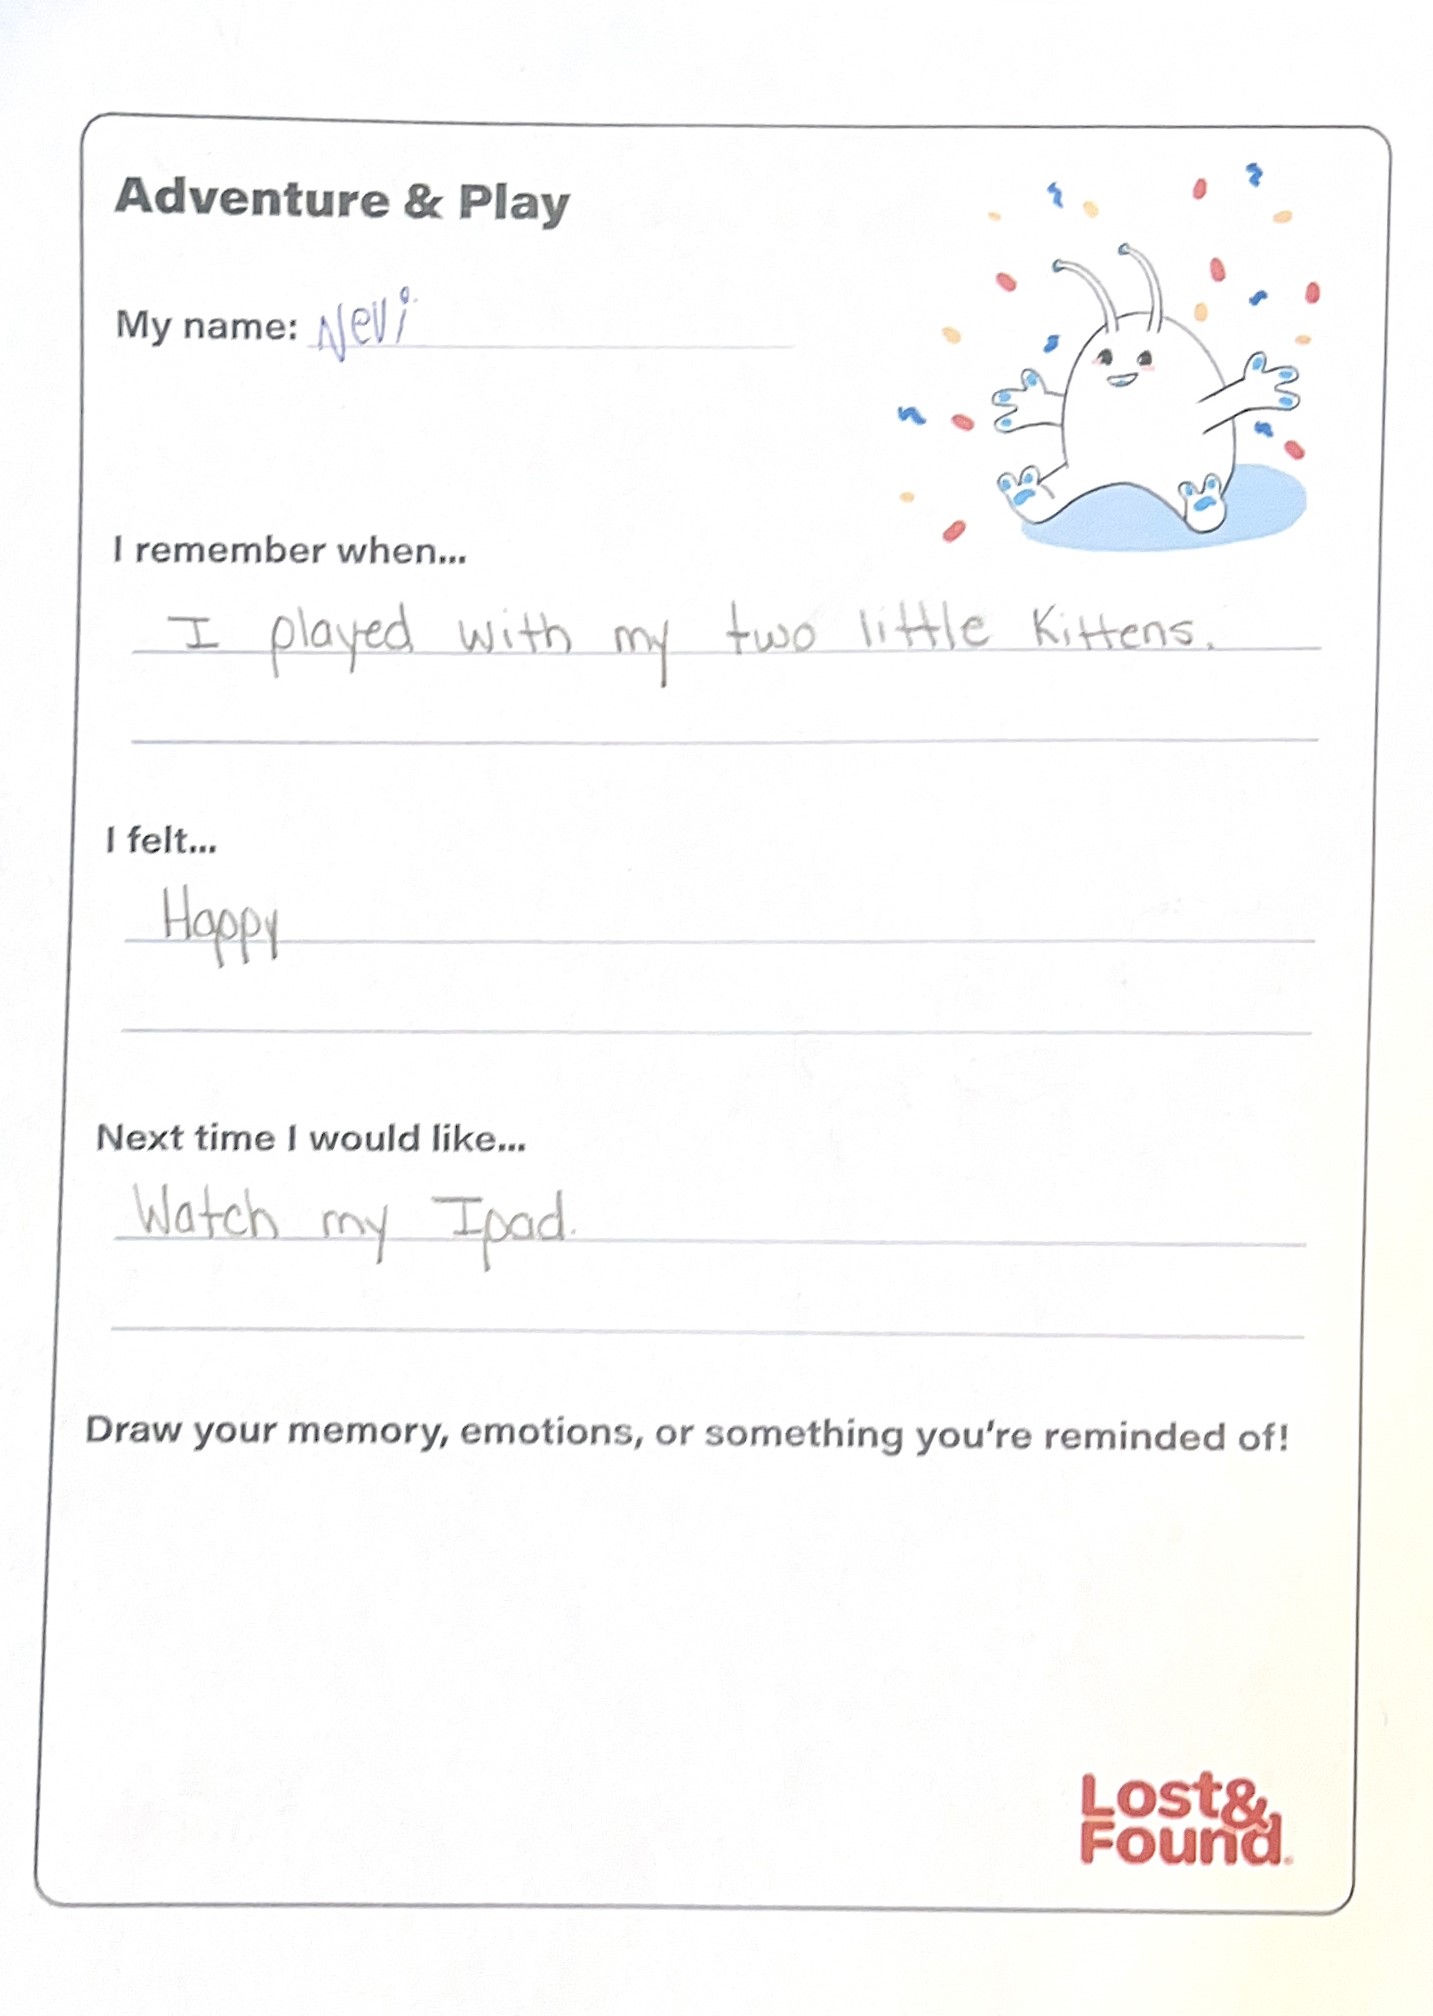 Adventure & Play
My name: Nevi
I remember when...
I played with my two little Kittens.
I felt...
Happy
Next time I would like...
Watch my Ipad.
Draw your memory, emotions, or something you're reminded of!
Lost&
Found